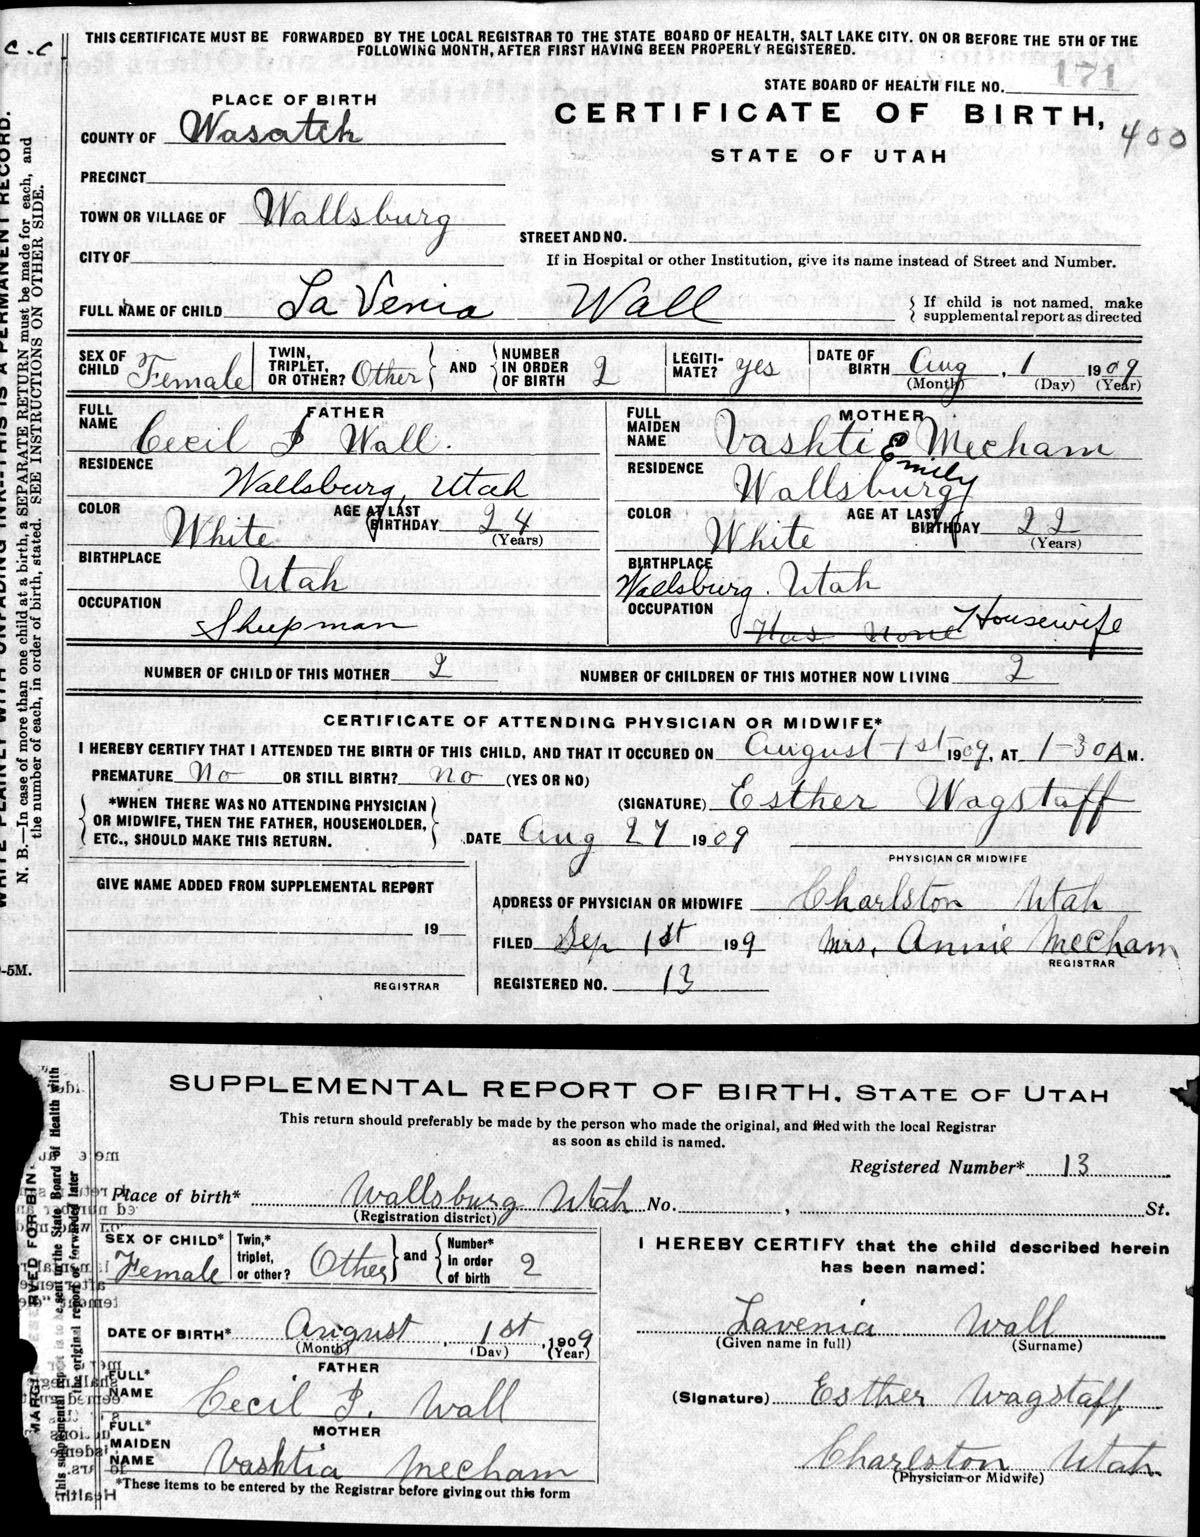 C.C
THIS CERTIFICATE MUST BE FORWARDED BY THE LOCAL REGISTRAR TO THE STATE BOARD OF HEALTH, SALT LAKE CITY, ON OR BEFORE THE 5TH OF THE
FOLLOWING MONTH, AFTER FIRST HAVING BEEN PROPERLY REGISTERED.
STATE BOARD OF HEALTH FILE NO. 171
PLACE OF BIRTH
CERTIFICATE OF BIRTH, 400
COUNTY OF Wasatch
STATE OF UTAH
PRECINCT
TOWN OR VILLAGE OF Wallsburg
STREET AND NO.
CITY OF
If in Hospital or other Institution, give its name instead of Street and Number.
FULL NAME OF CHILD La Venia Wall
{ If child is not named, make
supplemental report as directed
SEX OF CHILD Female TWIN, TRIPLET, OR OTHER? Other } AND { NUMBER IN ORDER OF BIRTH 2 LEGITI-MATE? yes DATE OF BIRTH Aug, 1 1909
(Month) (Day) (Year)
FATHER
FULL NAME Cecil I Wall.
RESIDENCE Wallsburg, Utah
COLOR White AGE AT LAST BIRTHDAY 24
(Years)
BIRTHPLACE Utah
OCCUPATION Sheepman
MOTHER
FULL MAIDEN NAME Vashti E Mecham
Emily
RESIDENCE Wallsburg
COLOR White AGE AT LAST BIRTHDAY 22
(Years)
BIRTHPLACE Wallsburg. Utah
OCCUPATION Has None Housewife
NUMBER OF CHILD OF THIS MOTHER 2 NUMBER OF CHILDREN OF THIS MOTHER NOW LIVING 2
CERTIFICATE OF ATTENDING PHYSICIAN OR MIDWIFE*
I HEREBY CERTIFY THAT I ATTENDED THE BIRTH OF THIS CHILD, AND THAT IT OCCURED ON August 1st 1909, AT 1-30 A M.
PREMATURE No OR STILL BIRTH? no (YES OR NO)
{ *WHEN THERE WAS NO ATTENDING PHYSICIAN
OR MIDWIFE, THEN THE FATHER, HOUSEHOLDER,
ETC., SHOULD MAKE THIS RETURN. }
(SIGNATURE) Esther Wagstaff
DATE Aug 27 1909
PHYSICIAN OR MIDWIFE
GIVE NAME ADDED FROM SUPPLEMENTAL REPORT
19
REGISTRAR
ADDRESS OF PHYSICIAN OR MIDWIFE Charlston Utah
FILED Sep 1st 1909 Mrs. Annie Mecham
REGISTRAR
REGISTERED NO. 13
WRITE PLAINLY WITH UNFADING INK--THIS IS A PERMANENT RECORD.
N. B.—In case of more than one child at a birth, a SEPARATE RETURN must be made for each, and
the number of each, in order of birth, stated. SEE INSTRUCTIONS ON OTHER SIDE.
-5M.
SUPPLEMENTAL REPORT OF BIRTH, STATE OF UTAH
This return should preferably be made by the person who made the original, and filed with the local Registrar
as soon as child is named.
Registered Number* 13
Place of birth* Wallsburg Utah No. , St.
(Registration district)
SEX OF CHILD* Female Twin,* triplet, or other? Other } and { Number* in order of birth 2
DATE OF BIRTH* August, 1st, 1909
(Month) (Day) (Year)
FATHER
FULL* NAME Cecil I. Wall
MOTHER
FULL* MAIDEN NAME Vashtia Mecham
*These items to be entered by the Registrar before giving out this form
I HEREBY CERTIFY that the child described herein
has been named:
Lavenia Wall
(Given name in full) (Surname)
(Signature) Esther Wagstaff
Charlston Utah
(Physician or Midwife)
This supplemental report is to be sent to the State Board of Health with
the original report or forwarded later